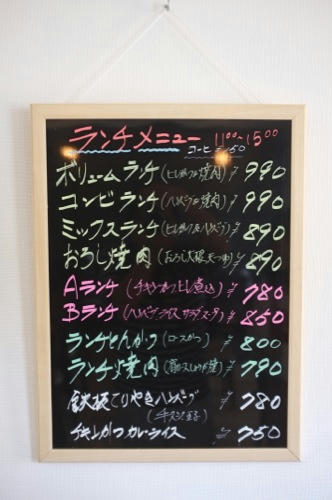 ランチメニュー 11:00~15:00
コーヒー 50
ボリュームランチ(ヒレカツ&焼肉) ¥990
コンビランチ(ハンバーグ&焼肉) ¥990
ミックスランチ(ヒレカツ&ハンバーグ) ¥890
おろし焼肉 ¥890
Aランチ(チキンカツ ¥780
Bランチ(ハンバーグライス ¥850
ランチとんかつ(ロースカツ) ¥800
ランチ焼肉 ¥790
鉄板てりやきハンバーグ ¥780
チキンかつカレーライス ¥750